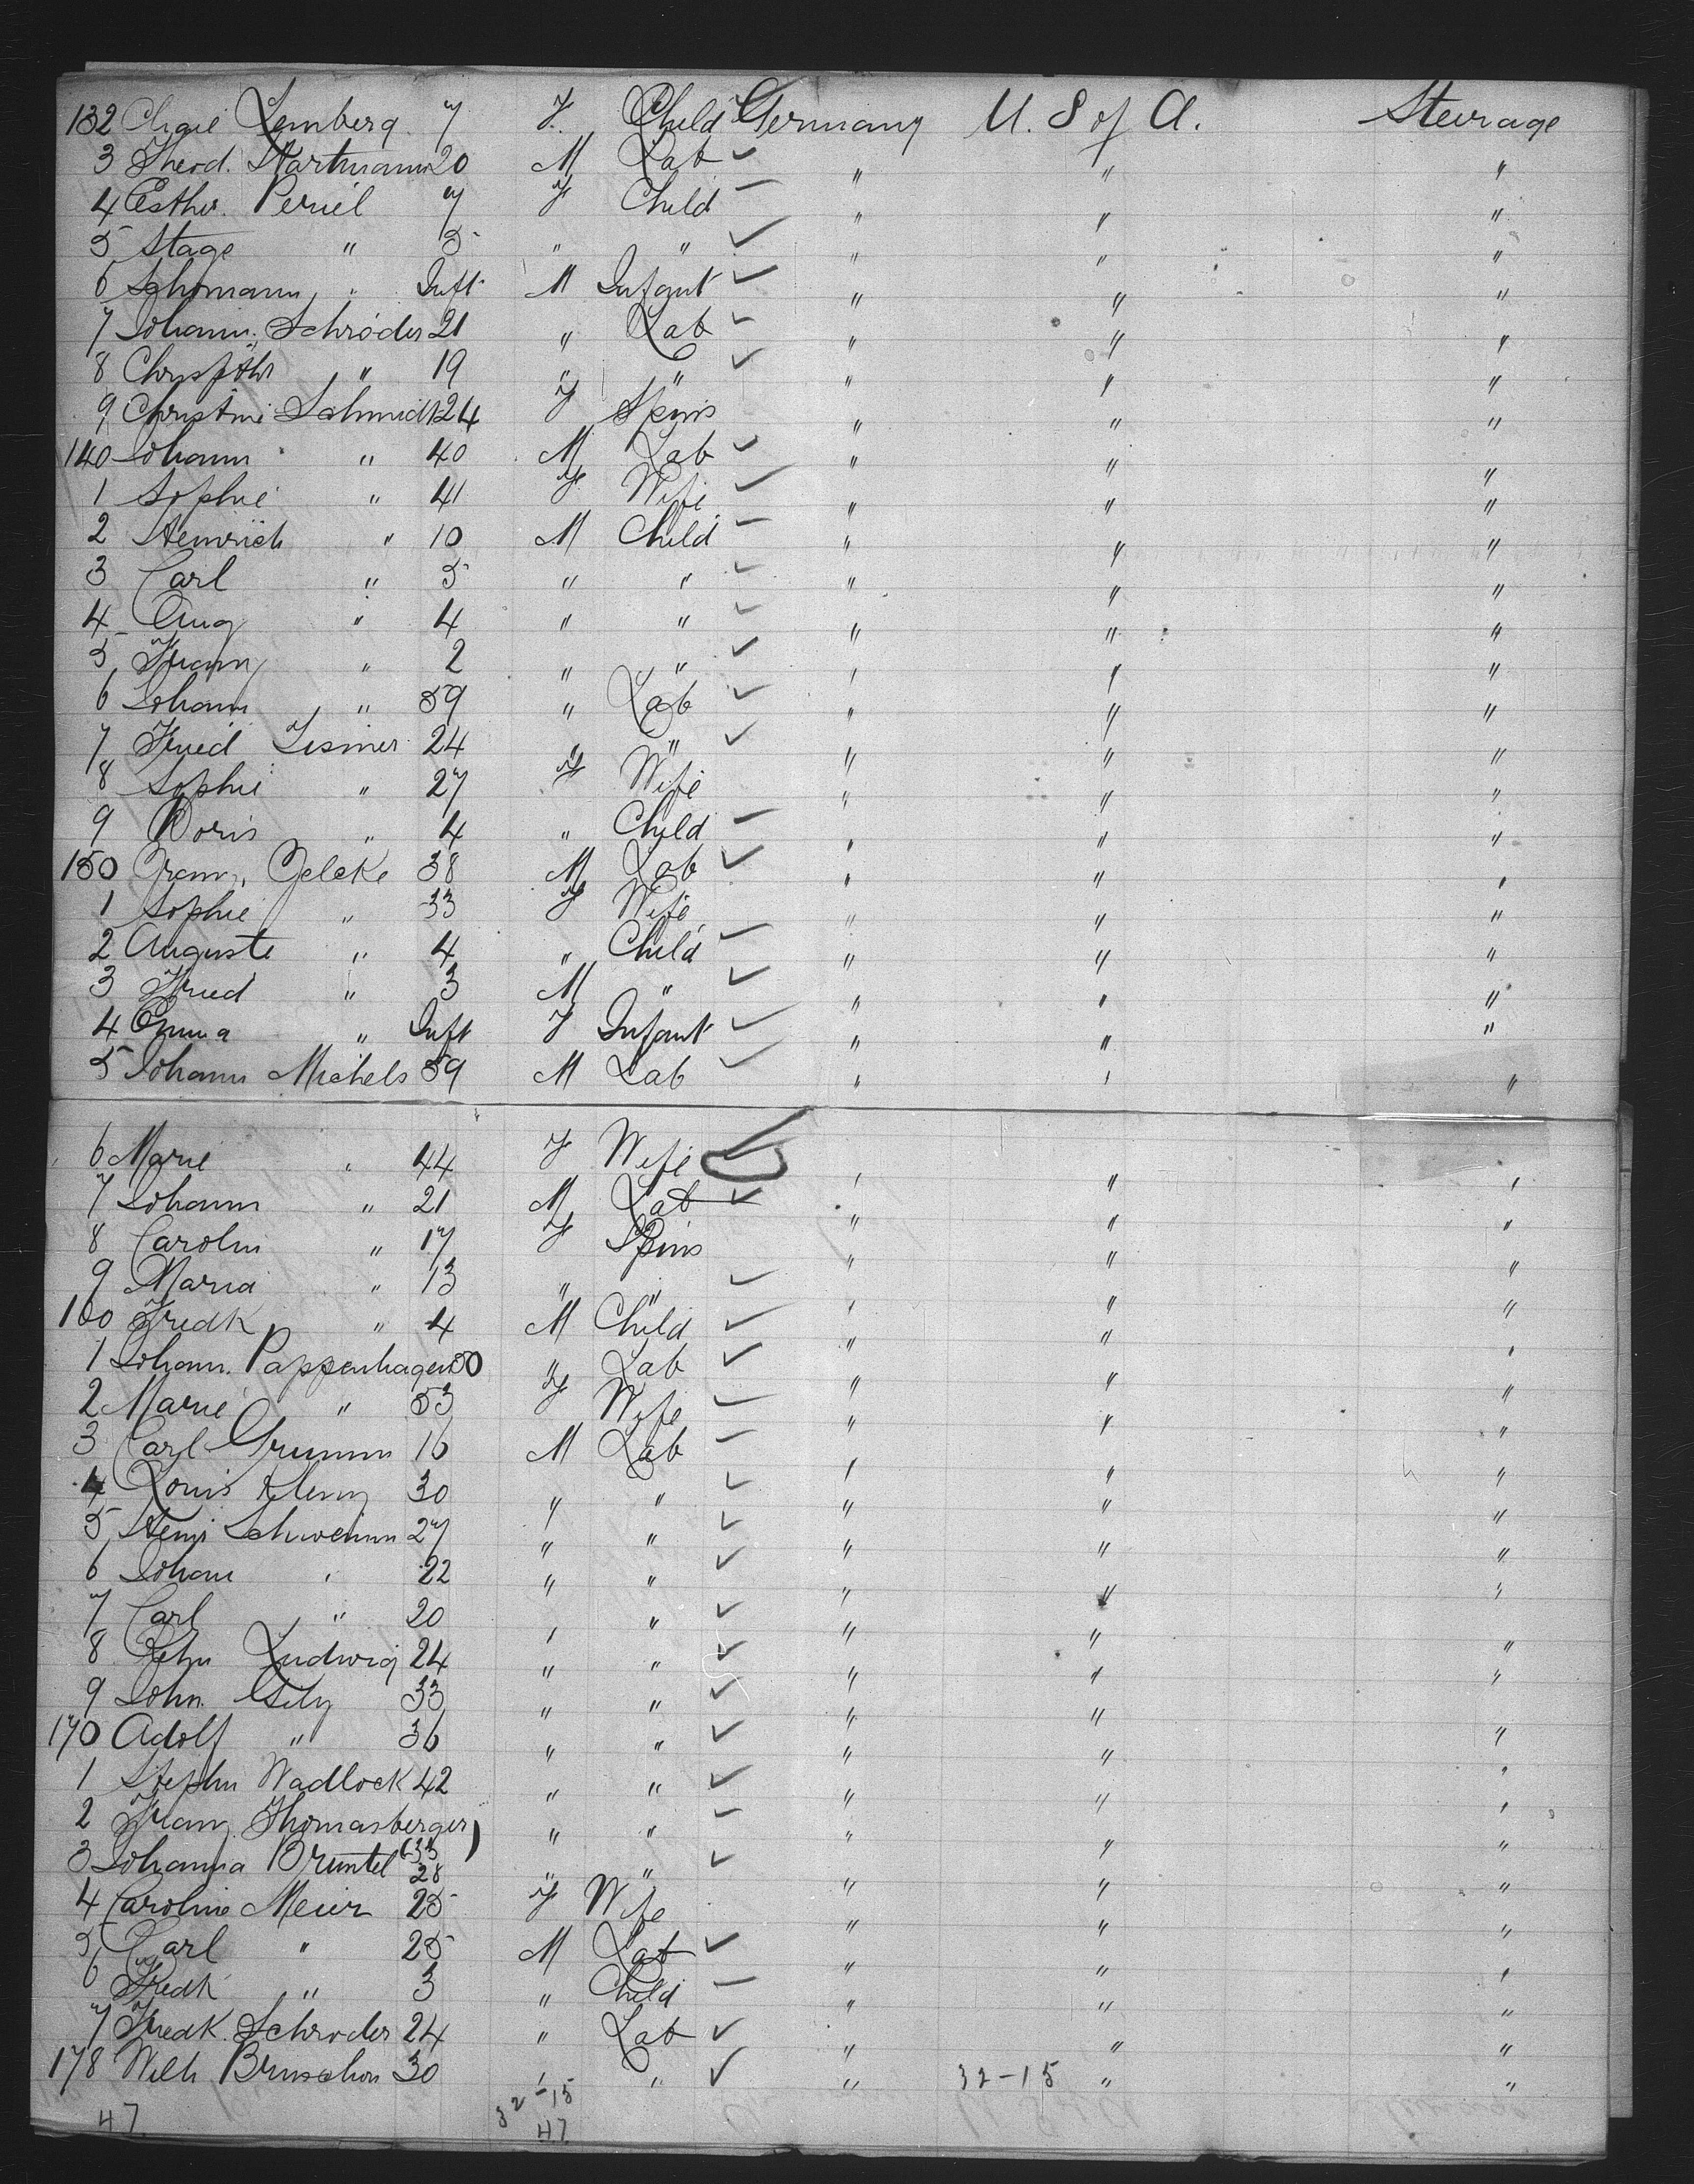 132 Lemberg 7 F. Child Germany U. S of A. Steerage
3 Theod. Hartmann 20 M Lab " " "
4 Esther Periel 7 F Child " " "
5 Stage " 5 " " " " "
6 Schomann " Inft M Infant " " "
7 Johann. Schröder 21 " Lab " " "
8 " 19 " " " " "
9 Christine Schmidt 24 F Spins " " "
140 Johann " 40 M Lab " " "
1 Sophie " 41 F Wife " " "
2 Heinrich " 10 M Child " " "
3 Carl " 5 " " " " "
4 Aug " 4 " " " " "
5 Franz " 2 " " " " "
6 Johann " 59 " Lab " " "
7 Fried Zismer 24 " " " " "
8 Sophie " 27 F Wife " " "
9 Doris " 4 " Child " " "
150 Franz, Gelcke 38 M Lab " " "
1 Sophie " 33 F Wife " " "
2 Auguste " 4 " Child " " "
3 Fried " 3 M " " " "
4 Emma " Inft F Infant " " "
5 Johann Michels 59 M Lab " " "
6 Marie " 44 F Wife " " "
7 Johann " 21 M Lab " " "
8 Carolin " 17 F Spins " " "
9 Maria " 13 " " " " "
160 Fredk " 4 M Child " " "
1 Johann. Pappenhagen 50 " Lab " " "
2 Marie " 53 F Wife " " "
3 Carl Grumm 16 M Lab " " "
4 Louis 30 " " " " "
5 Henri Schweimm 27 " " " " "
6 Johann " 22 " " " " "
7 Carl " 20 " " " " "
8 Ludwig 24 " " " " "
9 John 33 " " " " "
170 Adolf " 36 " " " " "
1 Stephn Wadlock 42 " " " " "
2 Franz Thomasberger " " " " "
3 Johanna Bruntel (33) 28 " " " " "
4 Caroline Meier 25 F Wife " " "
5 Carl " 25 M Lab " " "
6 Fredk " 3 " Child " " "
7 Fredk. Schroder 24 " Lab " " "
178 Wilh Bruschon 30 " " " 32-15 " "
47 32-15
47